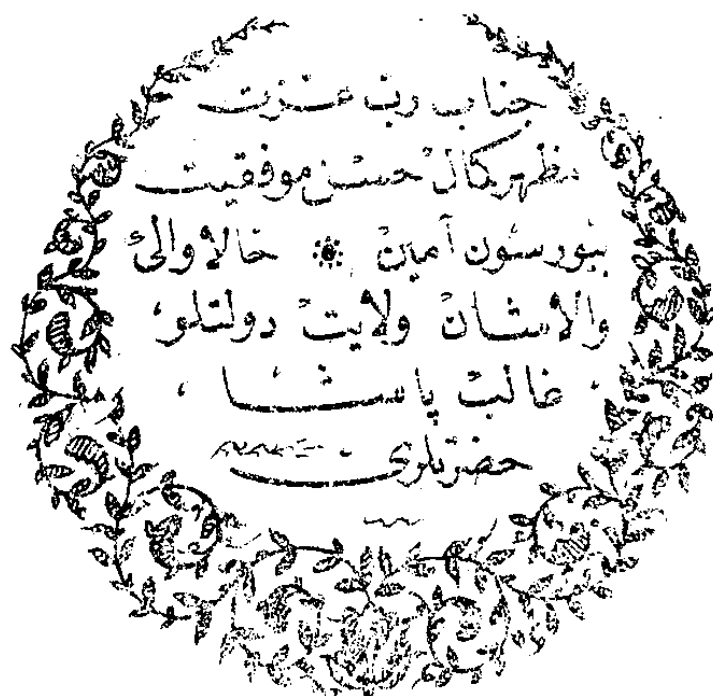 جناب رب عزت
مظهر كمال حسن موفقيت
بيورسون آمين حالا والئ
والاشان ولايت دولتلو
غالب پاشا
حضرتلرى